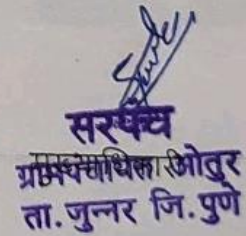 सरपंच
ग्रामपंचायत ओतुर
ता. जुन्नर जि. पुणे